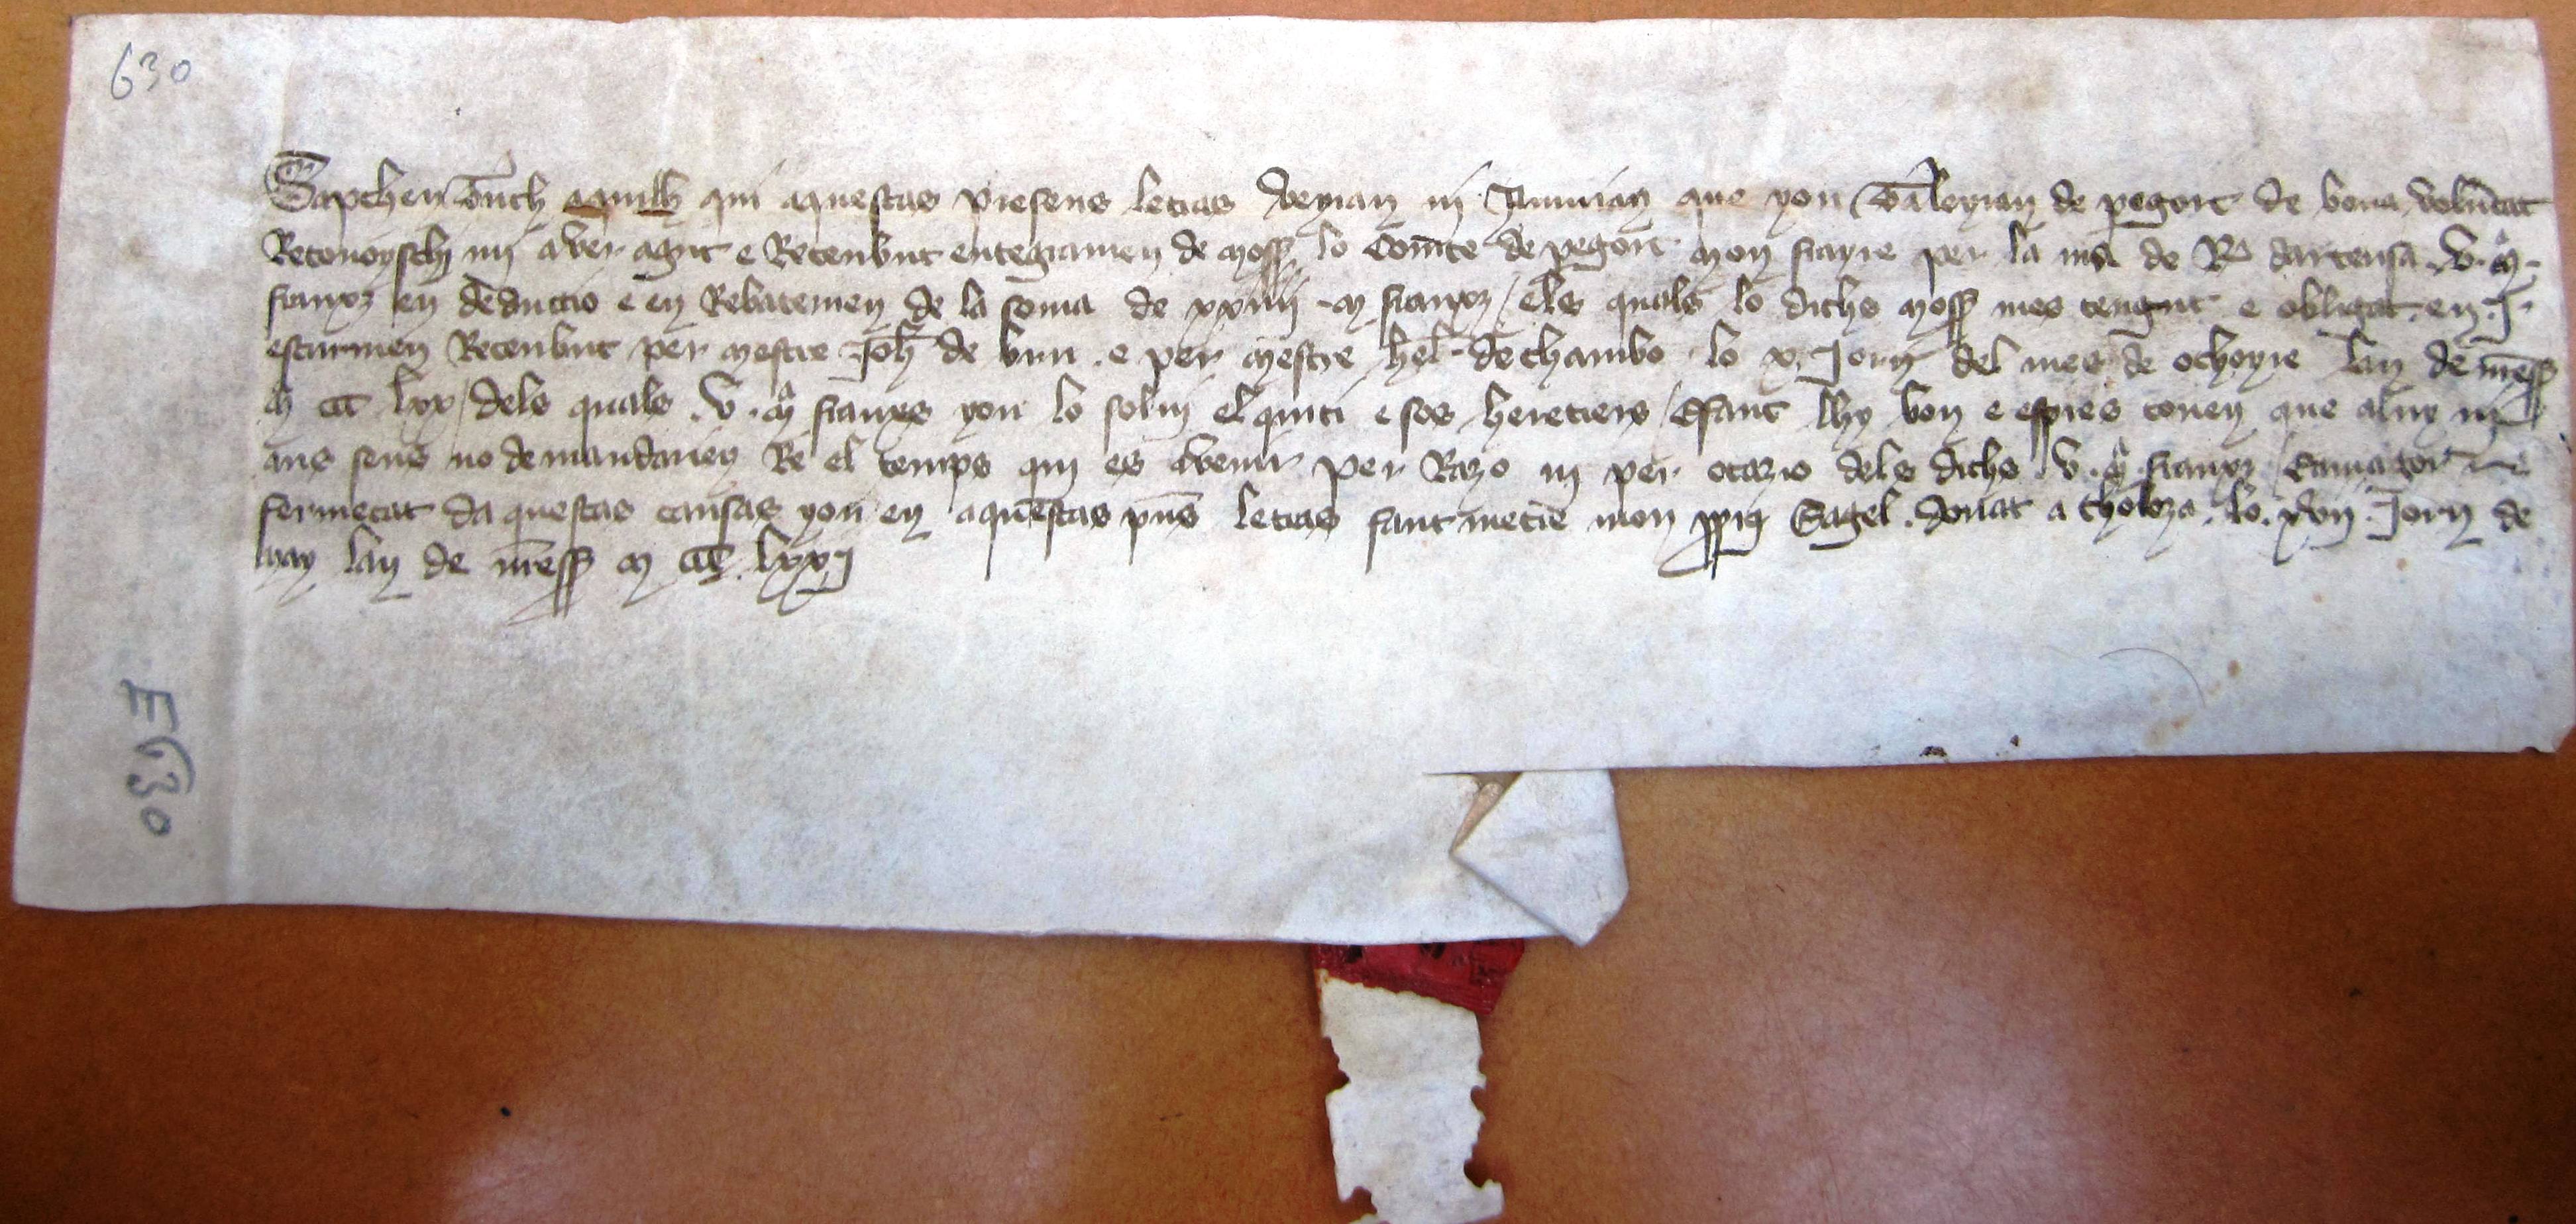 630
Sapchen tuch aquilh qui aquestas presens letras veyran ni Auuiran que you Taleyran de pegort de bona voluntat
Reconoyschi mi aver agut e Recenbut entegramen de moss lo Comte de pegort mon frayre per la ma de Rᵈ dartensa .V. mᵃ
franx en deductio e en Rebatemen de la soma de xxiiii m franx / els quals lo dichs moss mes tengut e obligat en .I.
esturmen Recenbut per mestre Joh de bru . e per mestre hel de chambo lo x Jorn del mes de ochoyre lan de mess
m ccc lxx / dels quals .V. mᵃ franxs you lo solvi el quiti e sos heretiers / E fauc lhy bon e espres coven que aluy ni
aus seus no demandarey Re el temps qui es avenir per Razo ni per ocazio dels dichs .V. mᵃ franx / E a maior
fermetat da questas causas you en aquestas pns letras fauc metre mon ppri Sagel . Donat a tholoza . lo . xvii Jorn de
may lan de mess m ccc lxxi
E630